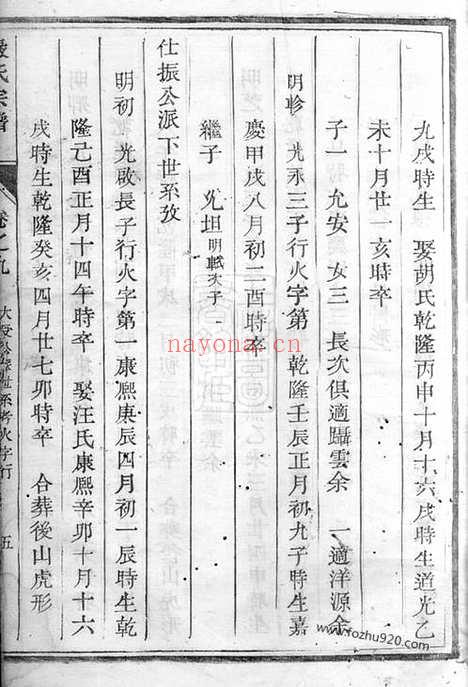 九戌時生　娶胡氏乾隆丙申十月十六戌時生道光乙
未十月廿一亥時卒
子一　允安　女三　長次俱適躡雲余　一適洋源余
明軫　光承三子行火字第　乾隆壬辰正月初九子時生嘉
慶甲戌八月初二酉時卒
繼子　允坦明軾次子
仕振公派下世系攷
明初　光啟長子行火字第一康熙庚辰四月初一辰時生乾
隆己酉正月十四年時卒　娶汪氏康熙辛卯十月十六
戌時生乾隆癸亥四月廿七卯時卒　合葬後山虎形
氏宗譜　卷之九　火字行　五
nayona.cn
www.fozhu920.com